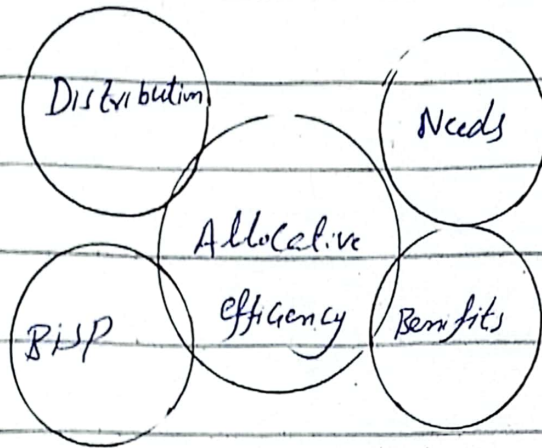 Distribution
Needs
Allocative
efficiency
BISP
Benifits